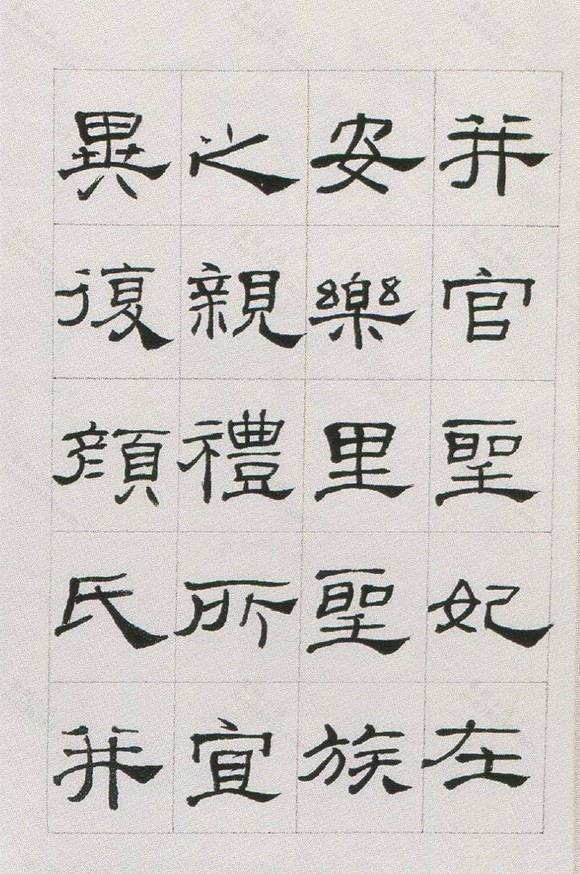 并官聖妃在
安樂里聖族
之親禮所宜
異復顏氏并